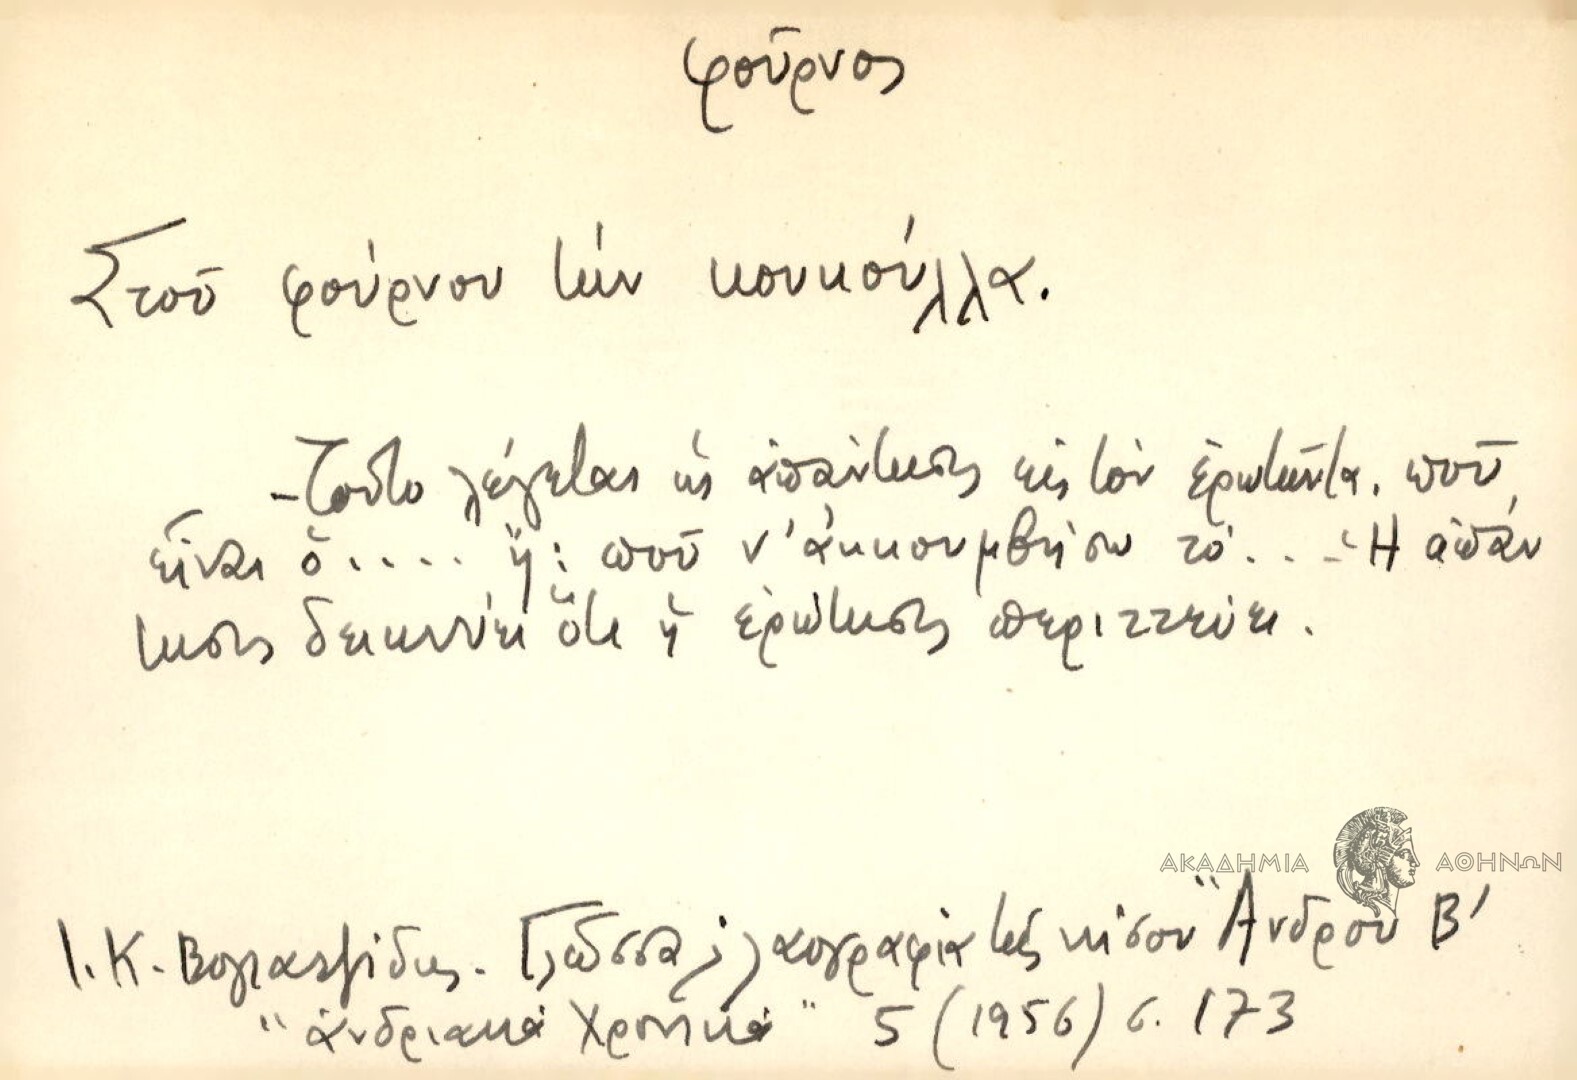 φοῦρνος
Στοῦ φούρνου τὴν κουκούλλα.
- Τοῦτο λέγεται ὡς ἀπάντησις εἰς τὸν ἐρωτῶντα. ποῦ
εἶναι ὁ.... ἤ: ποῦ ν' ἀκκουμβήσω τό... - Ἡ ἀπάν
τησις δεικνύει ὅτι ἡ ἐρώτησις περιττεύει.
ΑΚΑΔΗΜΙΑ ΑΘΗΝΩΝ
Ι. Κ. Βογιατζίδης. Γλῶσσα & λαογραφία τῆς νήσου Ἄνδρου Β'
"Ἀνδριακὰ Χρονικὰ" 5 (1956) σ. 173